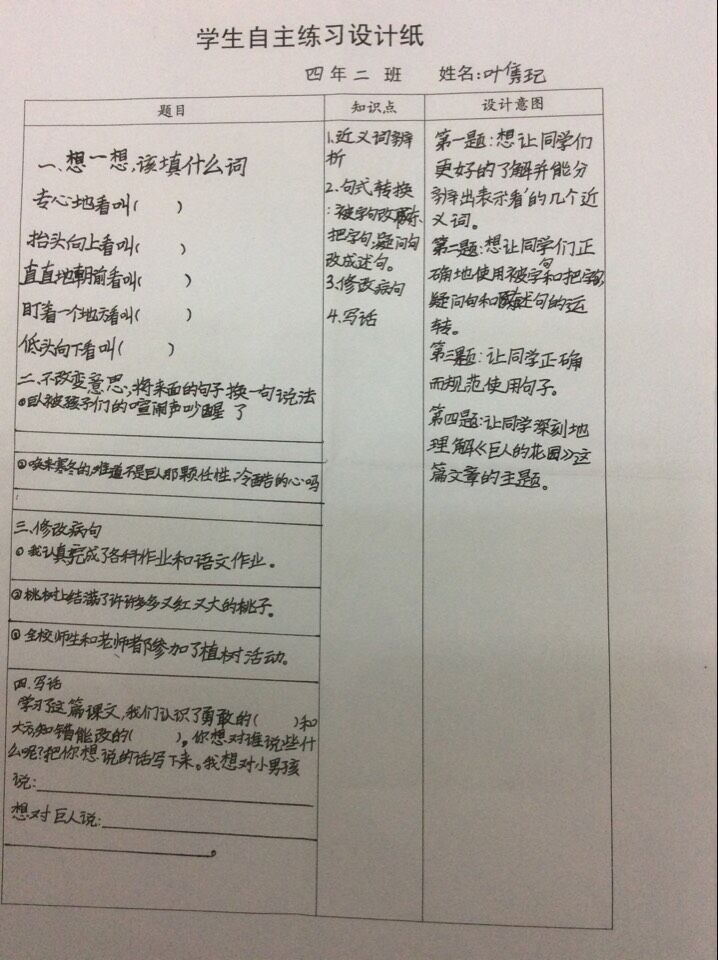 学生自主练习设计纸
四年二班 姓名:叶隽玘
题目 知识点 设计意图
一、想一想,该填什么词
专心地看叫( )
抬头向上看叫( )
直直地朝前看叫( )
盯着一个地方看叫( )
低头向下看叫( )
二、不改变意思,将来面的句子换一句说法
①巨人被孩子们的喧闹声吵醒了
②唤来寒冬的,难道不是巨人那颗任性、冷酷的心吗
三、修改病句
①我认真完成了各科作业和语文作业。
②桃树上结满了许许多多又红又大的桃子。
③全校师生和老师都参加了植树活动。
四、写话
学习了这篇课文,我们认识了勇敢的( )和
大方知错能改的( )。你想对谁说些什
么呢?把你想说的话写下来。我想对小男孩
说:
想对巨人说:
。
1.近义词辨
析
2.句式转换
:被字句改
把字句,疑问句
改成述句。
3.修改病句
4.写话
第一题:想让同学们
更好的了解并能分
辨出表示'看'的几个近
义词。
第二题:想让同学们正
确地使用被字句和把字句,
疑问句和陈述句的运
转。
第三题:让同学正确
而规范使用句子。
第四题:让同学深刻地
理解《巨人的花园》这
篇文章的主题。